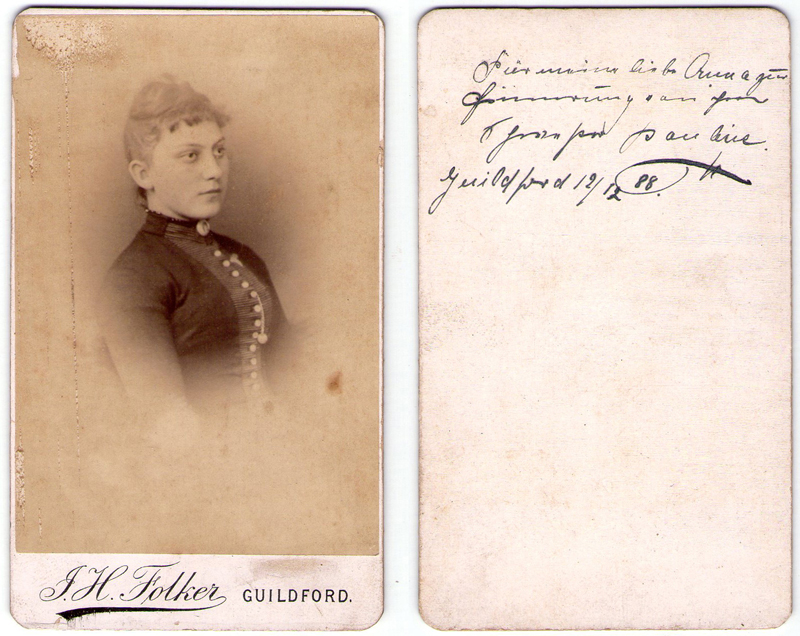 J. H. Folker GUILDFORD.
Für meine liebe Anna zur
Erinnerung von ihrer
Pauline.
Guildford 12/12 88.